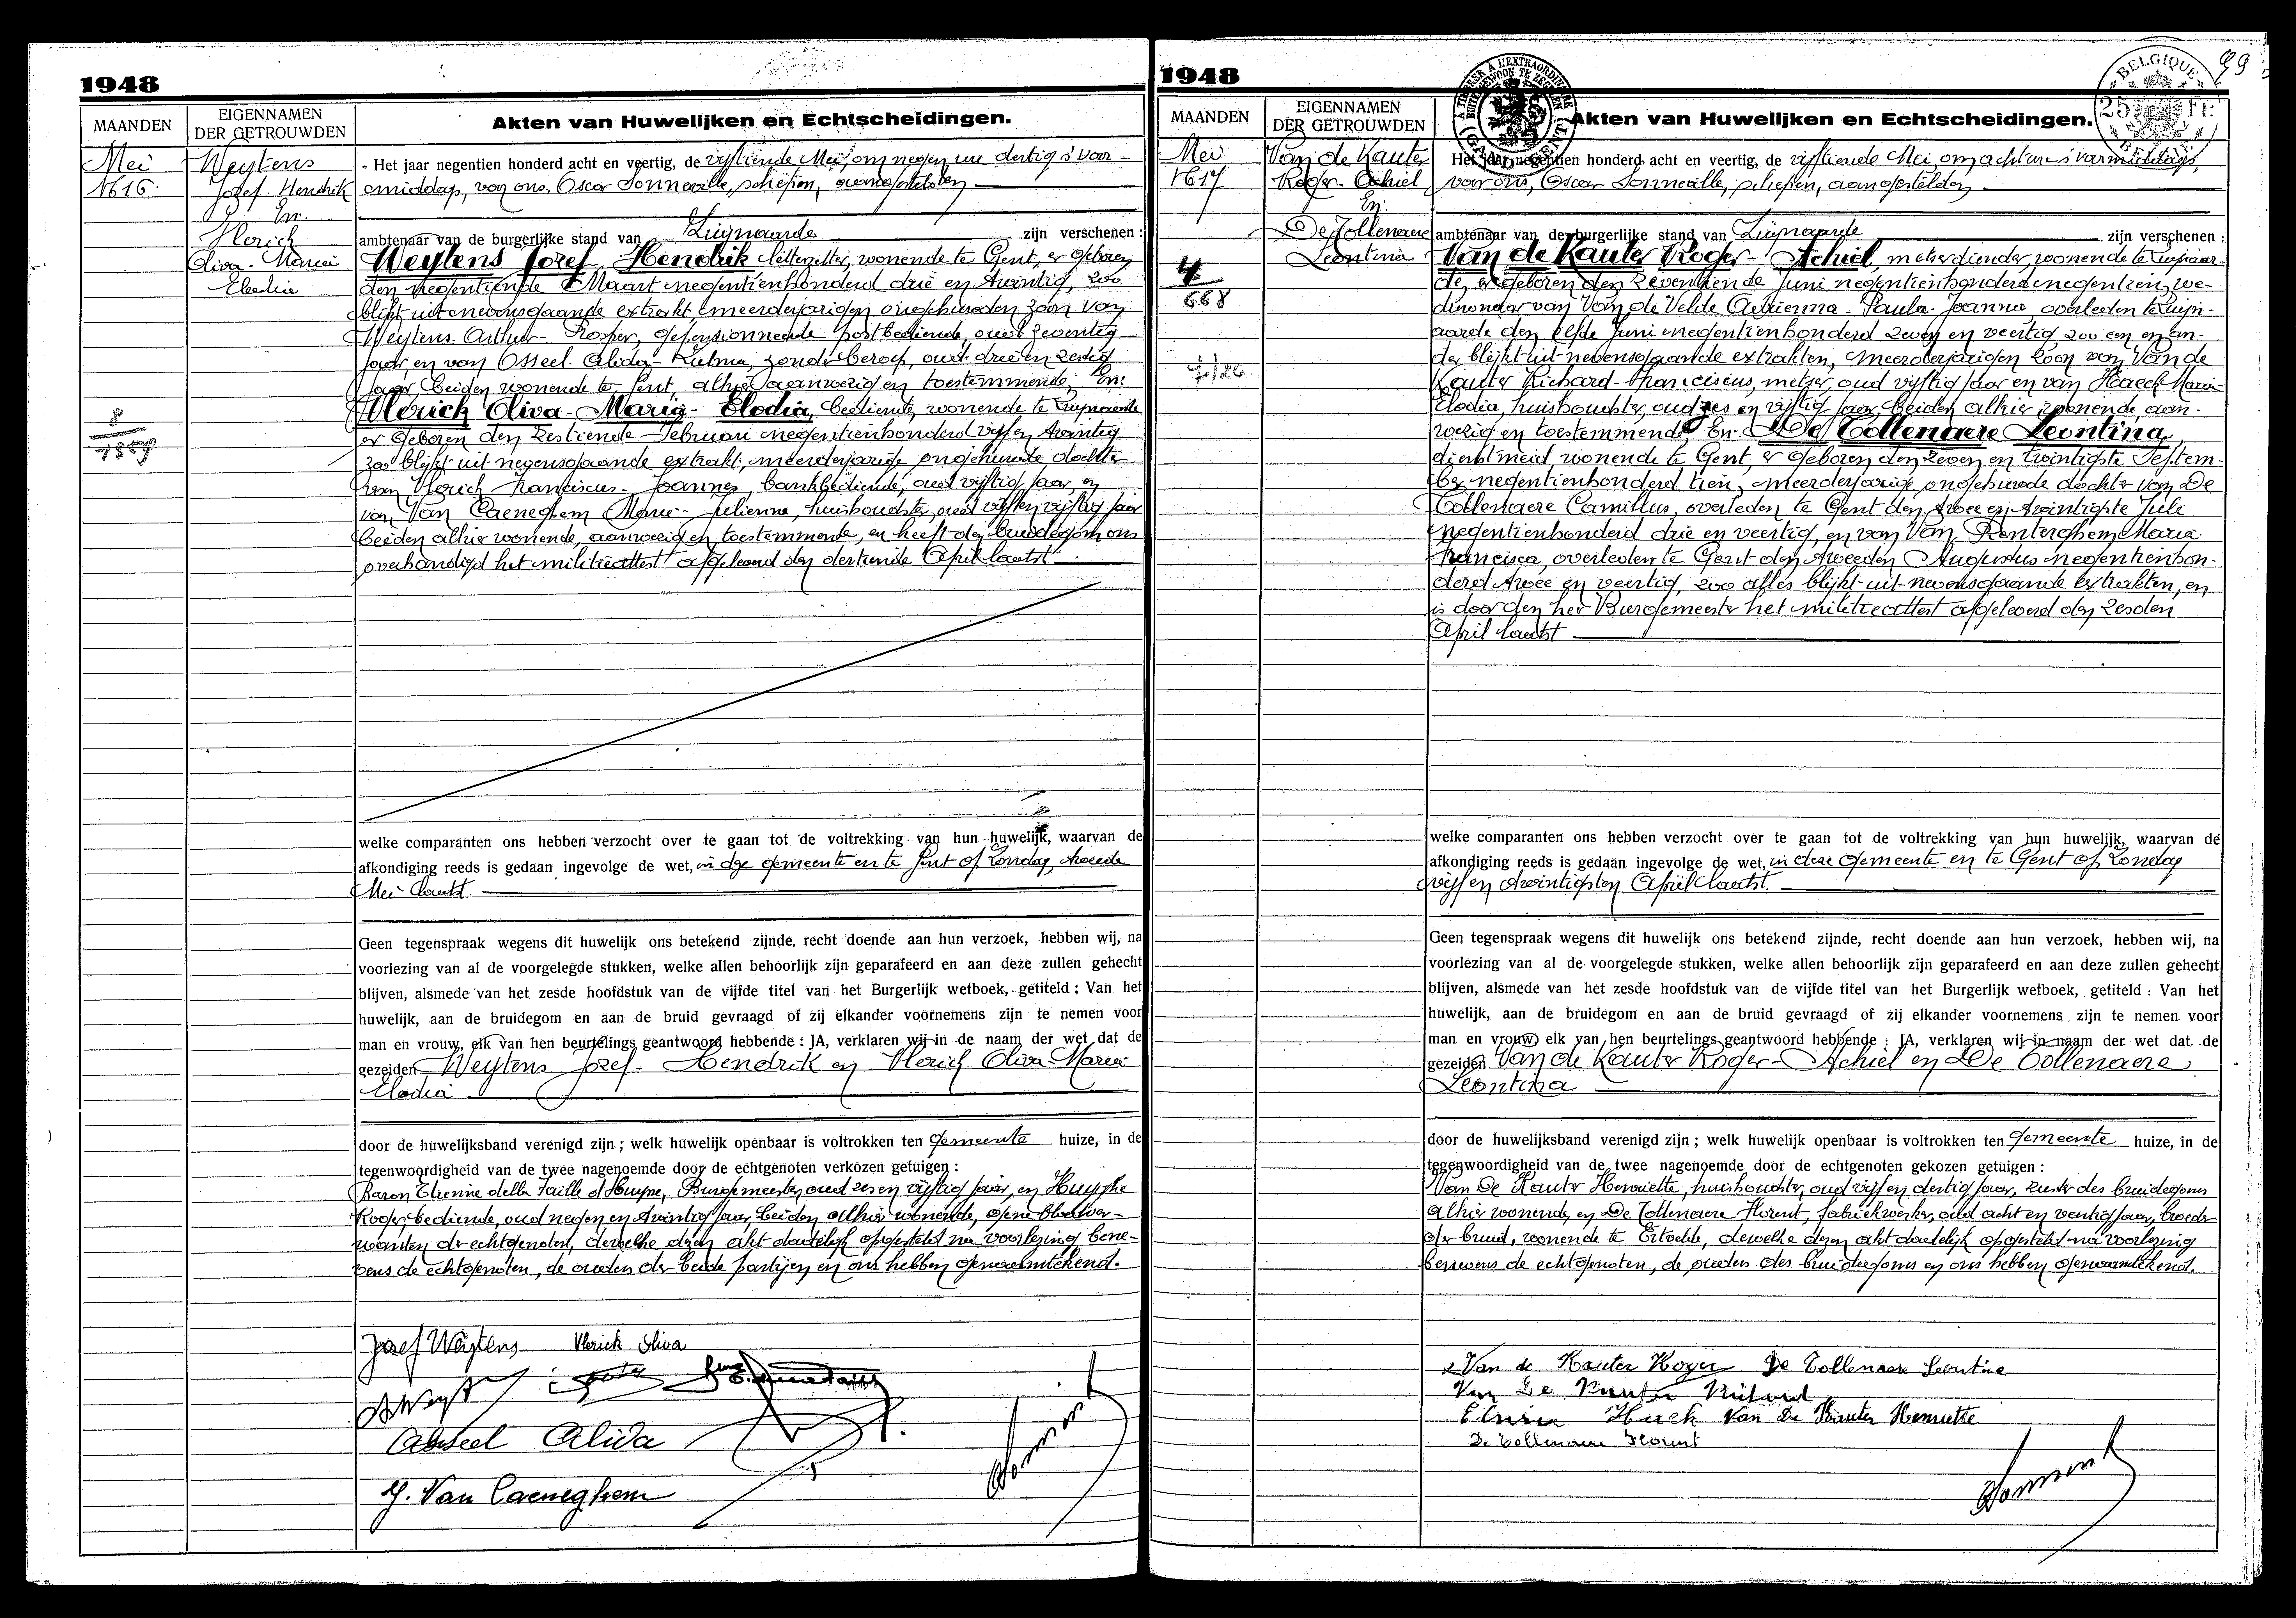 1948
MAANDEN
EIGENNAMEN
DER GETROUWDEN
Akten van Huwelijken en Echtscheidingen.
Mei
1616.
Weytens
Jozef-Hendrik
En:
Vlerick
Oliva-Maria
Elodia
8
1559
Het jaar negentien honderd acht en veertig, de vijftiende Mei, om negen uur dertig 's voor-
middags, voor ons, Oscar Sonneville, schepen, aangestelden
ambtenaar van de burgerlijke stand van Zwijnaarde zijn verschenen :
Weytens Jozef-Hendrik letterzetter, wonende te Gent, er geboren
den negentiende Maart negentienhonderd drie en twintig, zoo
blijkt uit nevensgaande extrakt meerderjarigen ongehuwden zoon van
Weytens Arthur-Prosper, gepensionneerde postbediende, oud zeventig
jaar, en van Osseel Alida-Zulma, zonder beroep, oud drie en zestig
jaar, beiden wonende te Gent, alhier aanwezig en toestemmende; En:
Vlerick Oliva-Maria-Elodia, bediende, wonende te Zwijnaarde
er geboren den zestiende Februari negentienhonderd vijf en twintig
zoo blijkt uit nevensgaande extrakt, meerderjarige ongehuwde dochter
van Vlerick Franciscus-Joannes, bankbediende, oud vijftig jaar, en
van Van Caeneghem Maria-Julienne, huishoudster, oud vijf en vijftig jaar
beiden alhier wonende, aanwezig en toestemmende, en heeft den bruidegom ons
overhandigd het militieattest afgeleverd den dertiende April laatst
welke comparanten ons hebben verzocht over te gaan tot de voltrekking van hun huwelijk, waarvan de
afkondiging reeds is gedaan ingevolge de wet, in deze gemeente en te Gent op Zondag, tweede
Mei laatst.
Geen tegenspraak wegens dit huwelijk ons betekend zijnde, recht doende aan hun verzoek, hebben wij, na
voorlezing van al de voorgelegde stukken, welke allen behoorlijk zijn geparafeerd en aan deze zullen gehecht
blijven, alsmede van het zesde hoofdstuk van de vijfde titel van het Burgerlijk wetboek, getiteld : Van het
huwelijk, aan de bruidegom en aan de bruid gevraagd of zij elkander voornemens zijn te nemen voor
man en vrouw, elk van hen beurtelings geantwoord hebbende : JA, verklaren wij in de naam der wet dat de
gezeiden Weytens Jozef-Hendrik en Vlerick Oliva-Maria
Elodia
door de huwelijksband verenigd zijn ; welk huwelijk openbaar is voltrokken ten gemeente huize, in de
tegenwoordigheid van de twee nagenoemde door de echtgenoten verkozen getuigen :
Baron Etienne della Faille d'Huysse, Burgemeester, oud zes en vijftig jaar, en Huyghe
Roger, bediende, oud negen en twintig jaar, beiden alhier wonende, geene bloedver-
wanten der echtgenoten, dewelke dezen akt dadelijk opgesteld na voorlezing bene-
vens de echtgenoten, de ouders der beide partijen en ons hebben genaamtekend.
Jozef Weytens Vlerick Oliva
Osseel Alida
M. Van Caeneghem
1948
MAANDEN
EIGENNAMEN
DER GETROUWDEN
Akten van Huwelijken en Echtscheidingen.
BELGIQUE
25 Fr.
BELGIË
A TIMBRER A L'EXTRAORDINAIRE
BUITENGEWOON TE ZEGELEN
(GAND-GENT)
Mei
1617
Van de Kauter
Roger-Achiel
En:
De Tollenaere
Leontina
4
668
Het jaar negentien honderd acht en veertig, de vijftiende Mei, om acht uur 's voormiddags,
voor ons, Oscar Sonneville, schepen, aangestelden
ambtenaar van de burgerlijke stand van Zwijnaarde zijn verschenen :
Van de Kauter Roger-Achiel, metserdiender, wonende te Zwijnaar-
de, er geboren den zeventiende Juni negentienhonderd negentien, we-
duwnaar van Van de Velde Adrienna-Paula-Joanna, overleden te Zwijn-
aarde den elfde Juni negentienhonderd zeven en veertig zoo een en an-
der blijkt uit nevensgaande extrakten, meerderjarigen zoon van Van de
Kauter Richard-Franciscus, metser, oud vijftig jaar en van Haeck Maria-
Elodia, huishoudster, oud zes en vijftig jaar, beiden alhier wonende, aan-
wezig en toestemmende; En: De Tollenaere Leontina,
dienstmeid, wonende te Gent, er geboren den zeven en twintigste Septem-
ber negentienhonderd tien, meerderjarige ongehuwde dochter van De
Tollenaere Camillus, overleden te Gent den twee en twintigste Juli
negentienhonderd drie en veertig, en van Van Renterghem Maria
Francisca, overleden te Gent den tweeden Augustus negentienhon-
derd twee en veertig, zoo alles blijkt uit nevensgaande extrakten, en
is door den heer Burgemeester het militieattest afgeleverd den zesden
April laatst
welke comparanten ons hebben verzocht over te gaan tot de voltrekking van hun huwelijk, waarvan de
afkondiging reeds is gedaan ingevolge de wet, in deze gemeente en te Gent op Zondag
vijf en twintigsten April laatst.
Geen tegenspraak wegens dit huwelijk ons betekend zijnde, recht doende aan hun verzoek, hebben wij, na
voorlezing van al de voorgelegde stukken, welke allen behoorlijk zijn geparafeerd en aan deze zullen gehecht
blijven, alsmede van het zesde hoofdstuk van de vijfde titel van het Burgerlijk wetboek, getiteld : Van het
huwelijk, aan de bruidegom en aan de bruid gevraagd of zij elkander voornemens zijn te nemen voor
man en vrouw, elk van hen beurtelings geantwoord hebbende : JA, verklaren wij in naam der wet dat de
gezeiden Van de Kauter Roger-Achiel en De Tollenaere
Leontina
door de huwelijksband verenigd zijn ; welk huwelijk openbaar is voltrokken ten gemeente huize, in de
tegenwoordigheid van de twee nagenoemde door de echtgenoten gekozen getuigen :
Van De Kauter Henriette, huishoudster, oud vijf en dertig jaar, zuster des bruidegoms
alhier wonende, en De Tollenaere Florent, fabriekwerker, oud acht en veertig jaar, broeder
der bruid, wonende te Ertvelde, dewelke dezen akt dadelijk opgesteld na voorlezing
benevens de echtgenoten, de ouders des bruidegoms en ons hebben genaamtekend.
Van de Kauter Roger De Tollenaere Leontine
Van De Kauter
Haeck Van De Kauter Henriette
De Tollenaere Florent